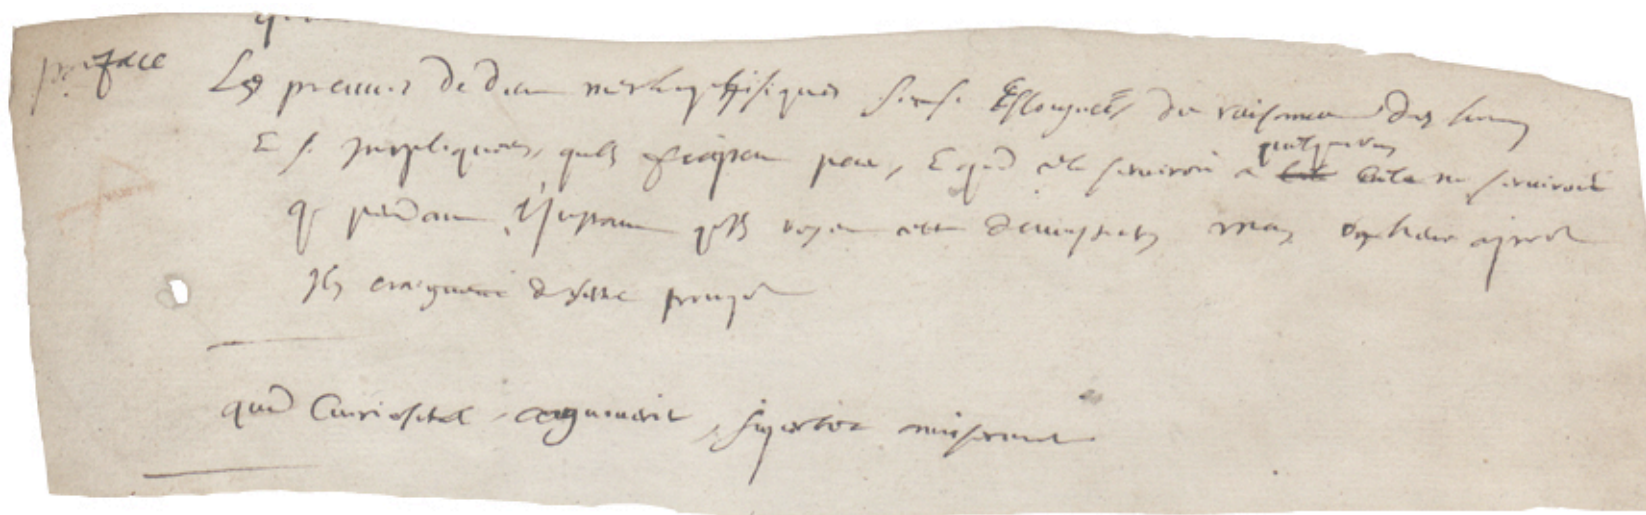 preface
Les preuues de dieu metaphysiques sont si Esloignées du raisonnemt des hommes
Et si Impliquées, quelles frappent peu, Et quand cela seruiroit a quelques uns cela ne seruiroit
que pendant l'Instant quils voyent cette demonstration mais vne heure apres
Ils craignent de sestre trompez
quod Curiositate cognouerint, superbia amiserunt